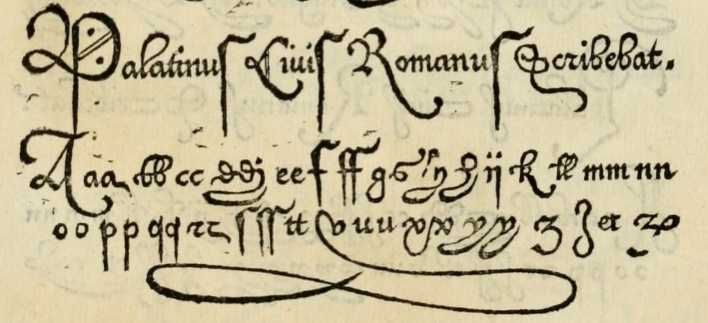 Palatinus Civis Romanus Scribebat.
Aaa bb cc ddd ee f ff g g y h ij k ll mm nn
oo pp qq rr s ss tt v u u x x y y z z et